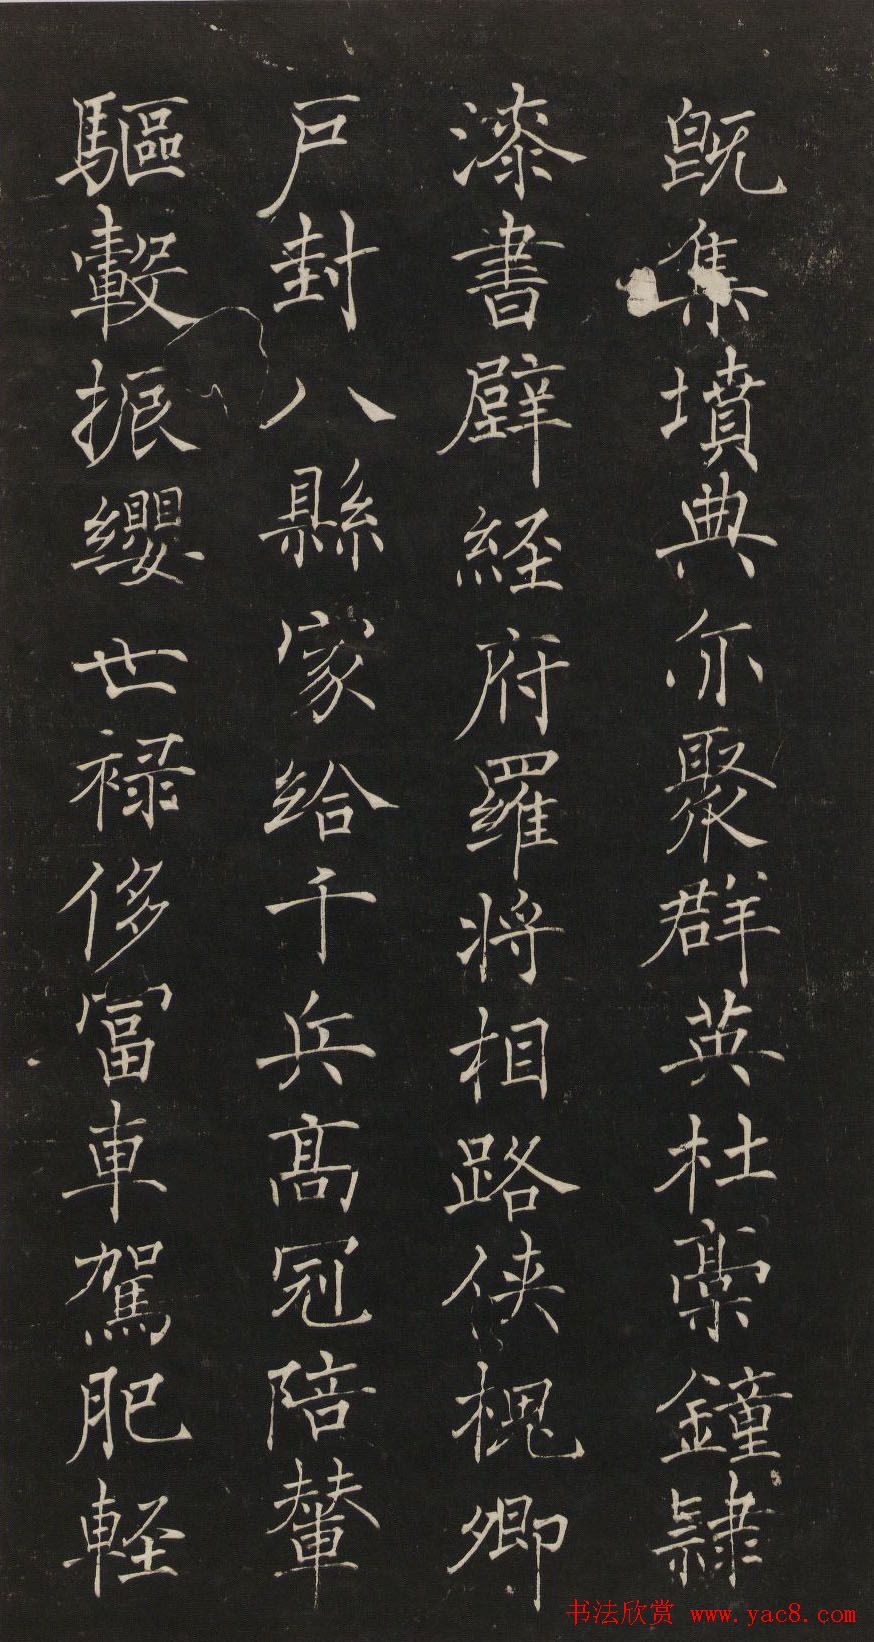 既集墳典亦聚群英杜藁鍾隸
漆書壁経府羅将相路俠槐卿
戸封八縣家給千兵髙冠陪輦
驅轂振纓世禄侈富車駕肥軽
书法欣赏 www.yac8.com